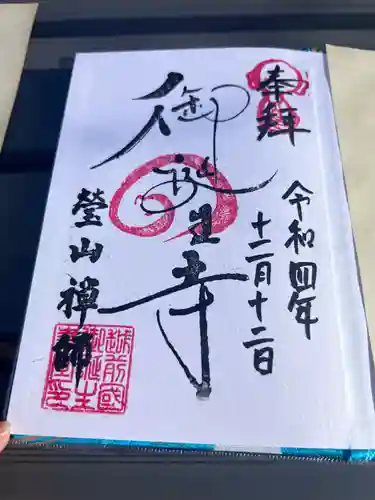 奉拝
令和四年
十二月十二日
御誕生寺
瑩山禅師
越前國